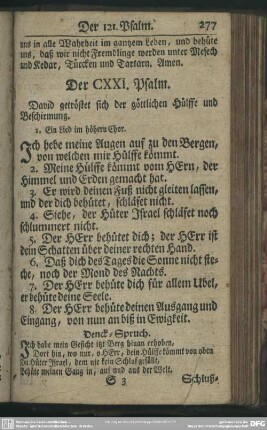 Der 121. Psalm. 277
uns in alle Wahrheit im gantzem Leben, und behüte
uns, daß wir nicht Fremdlinge werden unter Mesech
und Kedar, Türcken und Tartarn. Amen.
Der CXXI. Psalm.
David getröstet sich der göttlichen Hülffe und
Beschirmung.
1. Ein Lied im höhern Chor.
Ich hebe meine Augen auf zu den Bergen,
von welchen mir Hülffe kömmt.
2. Meine Hülffe kömmt vom HErn, der
Himmel und Erden gemacht hat.
3. Er wird deinen Fuß nicht gleiten lassen,
und der dich behütet, schläfet nicht.
4. Siehe, der Hüter Israel schläfet noch
schlummert nicht.
5. Der HErr behütet dich; der HErr ist
dein Schatten über deiner rechten Hand.
6. Daß dich des Tages die Sonne nicht ste-
che, noch der Mond des Nachts.
7. Der HErr behüte dich für allem Ubel,
er behüte deine Seele.
8. Der HErr behüte deinen Ausgang und
Eingang, von nun an biß in Ewigkeit.
Denck-Spruch.
Ich habe mein Gesicht itzt Berg hinan erhoben,
Dort hin, wo nur, o HErr, dein Hülffe kömmt von oben
Du Hüter Israel, dem nie kein Schlaf
Behüte meinen Gang in, auf und aus der Welt.
S 3 Schluß-